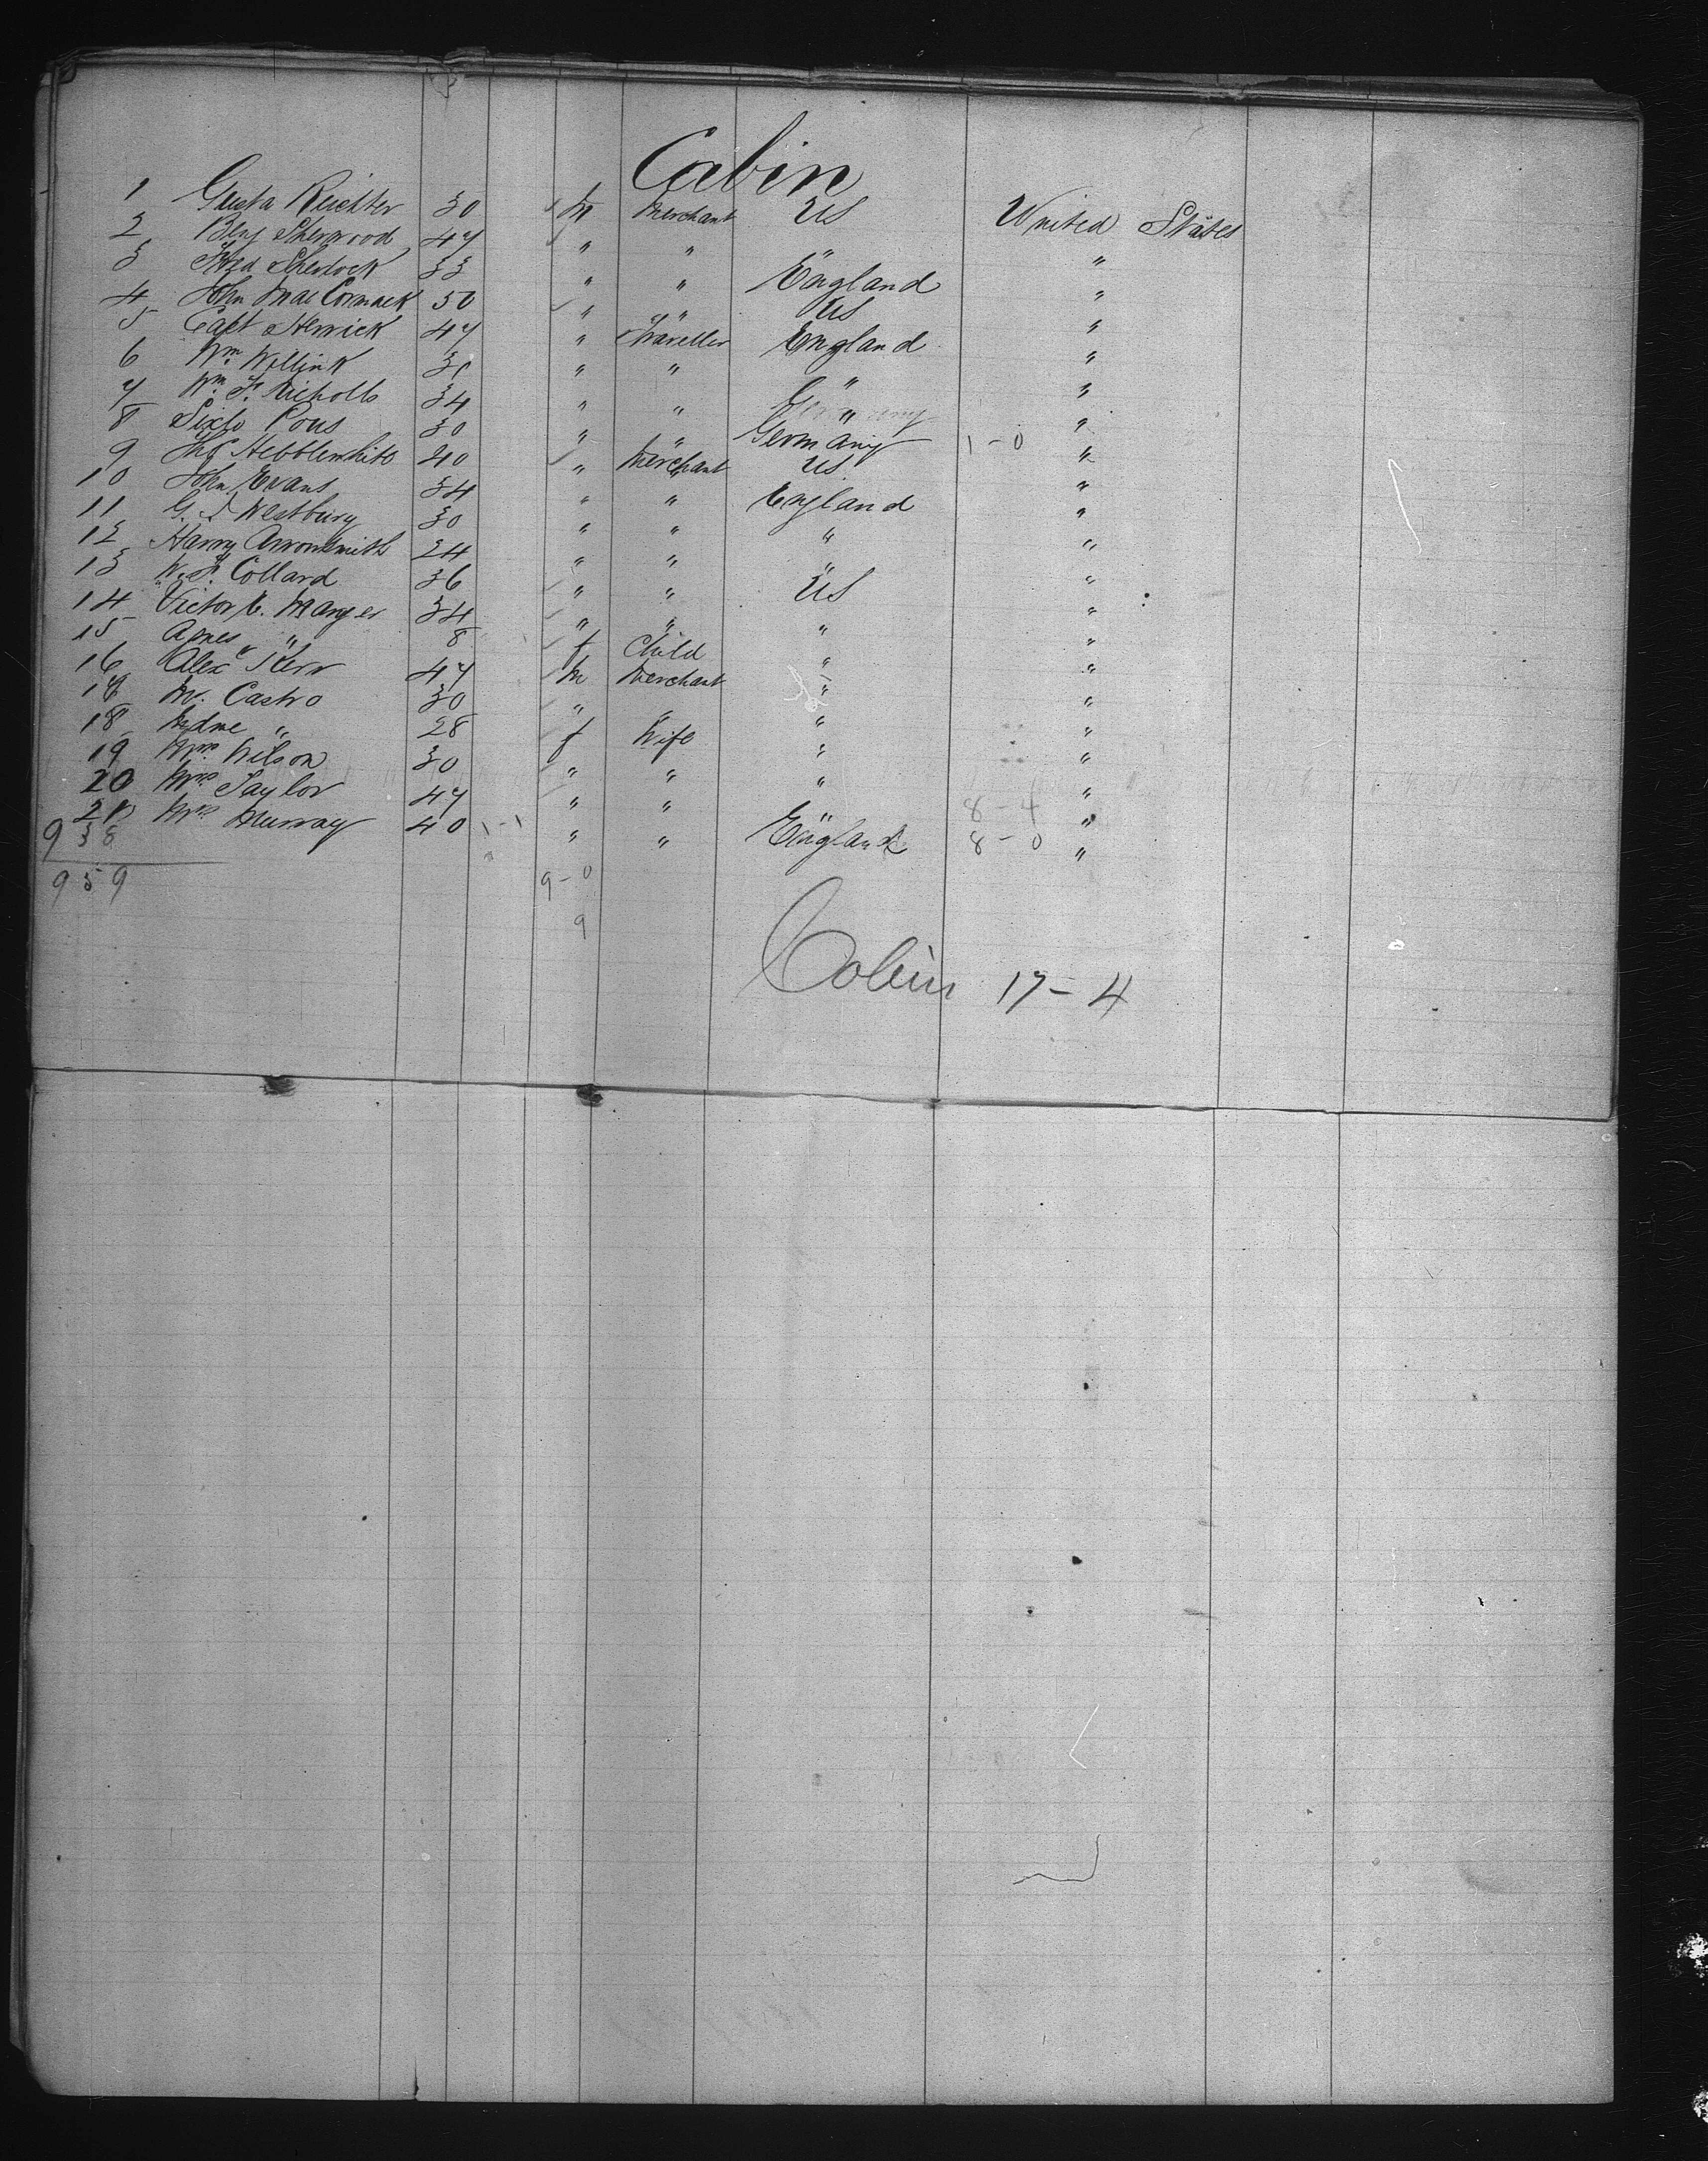 Cabin
1 Gusta Reichter 30 m Merchant US United States
2 Benj Sherwood 47 " " " "
3 Fred Sherlock 33 " " England "
4 John MacCormack 50 " " US "
5 Capt Herrick 47 " Traveller England "
6 Wm Willink 31 " " " "
7 Wm F. Nicholls 34 " " " "
8 Sixto Pous 30 " " Germany 1-0 "
9 Hebblewhite 40 " Merchant US "
10 John Evans 34 " " England "
11 G. Westbury 30 " " " "
12 Harry Arrowsmith 24 " " " "
13 W. F. Collard 36 " " US "
14 Victor E. Manger 34 " " " "
15 Agnes " 8 f Child " "
16 Alex Kerr 47 m Merchant " "
17 M. Castro 30 " " " "
18 Mdme " 28 f Wife " "
19 Mrs Wilson 30 " " " "
20 Mrs Taylor 47 " " " 8-4 "
21 Mrs Murray 40 1-1 " " England 8-0 "
938
959 9-0
9
Cabin 17-4